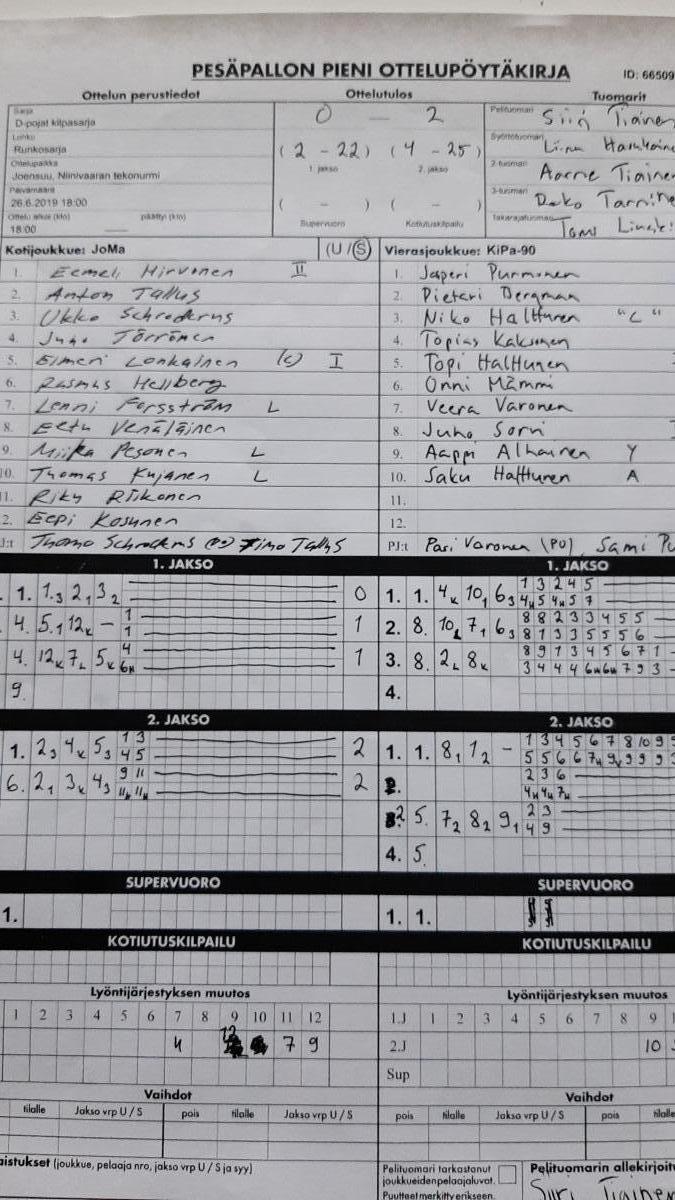 PESÄPALLON PIENI OTTELUPÖYTÄKIRJA
ID: 66509
Ottelun perustiedot
Ottelutulos
Tuomarit
Sarja
D-pojat kilpasarja
Lohko
Runkosarja
Ottelupaikka
Joensuu, Niinivaaran tekonurmi
Päivämäärä
26.6.2019 18:00
Ottelu alkue (klo) päättyi (klo)
18:00
0 — 2
(2 - 22) (4 - 25)
1. jakso 2. jakso
( - ) ( - )
Supervuoro Kotiutuskilpailu
Pelituomari Siiri Tiainen
Syöttötuomari
2-tuomari Aarne Tiainen
3-tuomari
Takarajatuomari
Kotijoukkue: JoMa (U / S)
1. Eemeli Hirvonen II
2. Anton Tallus
3. Ukko Schroderus
4. Juho Törrönen
5. Elmeri Lonkainen (c) I
6. Rasmus Hellberg
7. Lenni Forsström L
8. Eetu Venäläinen
9. Miika Pesonen L
10. Thomas Kujanen L
11. Riku Riikonen
2. Eepi Kosunen
J:t Timo Tallus
Vierasjoukkue: KiPa-90
1. Jasperi Purmonen
2. Pietari Bergman
3. Niko Halttunen "L"
4. Topias Kaksonen
5. Topi Halttunen
6. Onni Mämmi
7. Veera Varonen
8. Juho Sorvi
9. Aappi Alhainen Y
10. Saku Halttunen A
11.
12.
PJ:t Pasi Varonen (PU), Sami Pu
1. JAKSO
1. 1.3 2,3 3 2 0
4. 5,1 12k - 1 1 1
4. 12k 7L 5k 4 6k 1
9.
1. JAKSO
1. 1. 4k 10,1 6 3 1 3 2 4 5
4k 5 4k 5 7
2. 8. 10 7,1 6 3 8 8 2 3 3 4 5 5
8 1 3 3 5 5 5 6
3. 8. 2L 8k 8 9 1 3 4 5 6 7 1
3 4 4 4 6k 6k 7 9 3
4.
2. JAKSO
1. 2 3 4k 5 3 1 3 4 5 2
6. 2 1 3k 4 3 9 11 11k 11k 2
2. JAKSO
1. 1. 8 1 1 2 - 1 3 4 5 6 7 8 10 9
5 5 6 6 7k 9k 9 9 9
2 3 6
4k 4k 7k
2 5. 7 2 8 2 9 1 2 3
4 9
4. 5.
SUPERVUORO
1.
SUPERVUORO
1. 1.
KOTIUTUSKILPAILU
KOTIUTUSKILPAILU
Lyöntijärjestyksen muutos
1 2 3 4 5 6 7 8 9 10 11 12
4 12 7 9
Lyöntijärjestyksen muutos
1.J 1 2 3 4 5 6 7 8 9
2.J 10
Sup
Vaihdot
tilalle Jakso vrp U / S pois tilalle Jakso vrp U / S
Vaihdot
pois tilalle Jakso vrp U / S pois tilalle
aistukset (joukkue, pelaaja nro, jakso vrp U / S ja syy)
Pelituomari tarkastanut
joukkueiden pelaajaluvat.
Puutteet merkitty erikseen.
Pelituomarin allekirjoitu
Siiri Tiainen